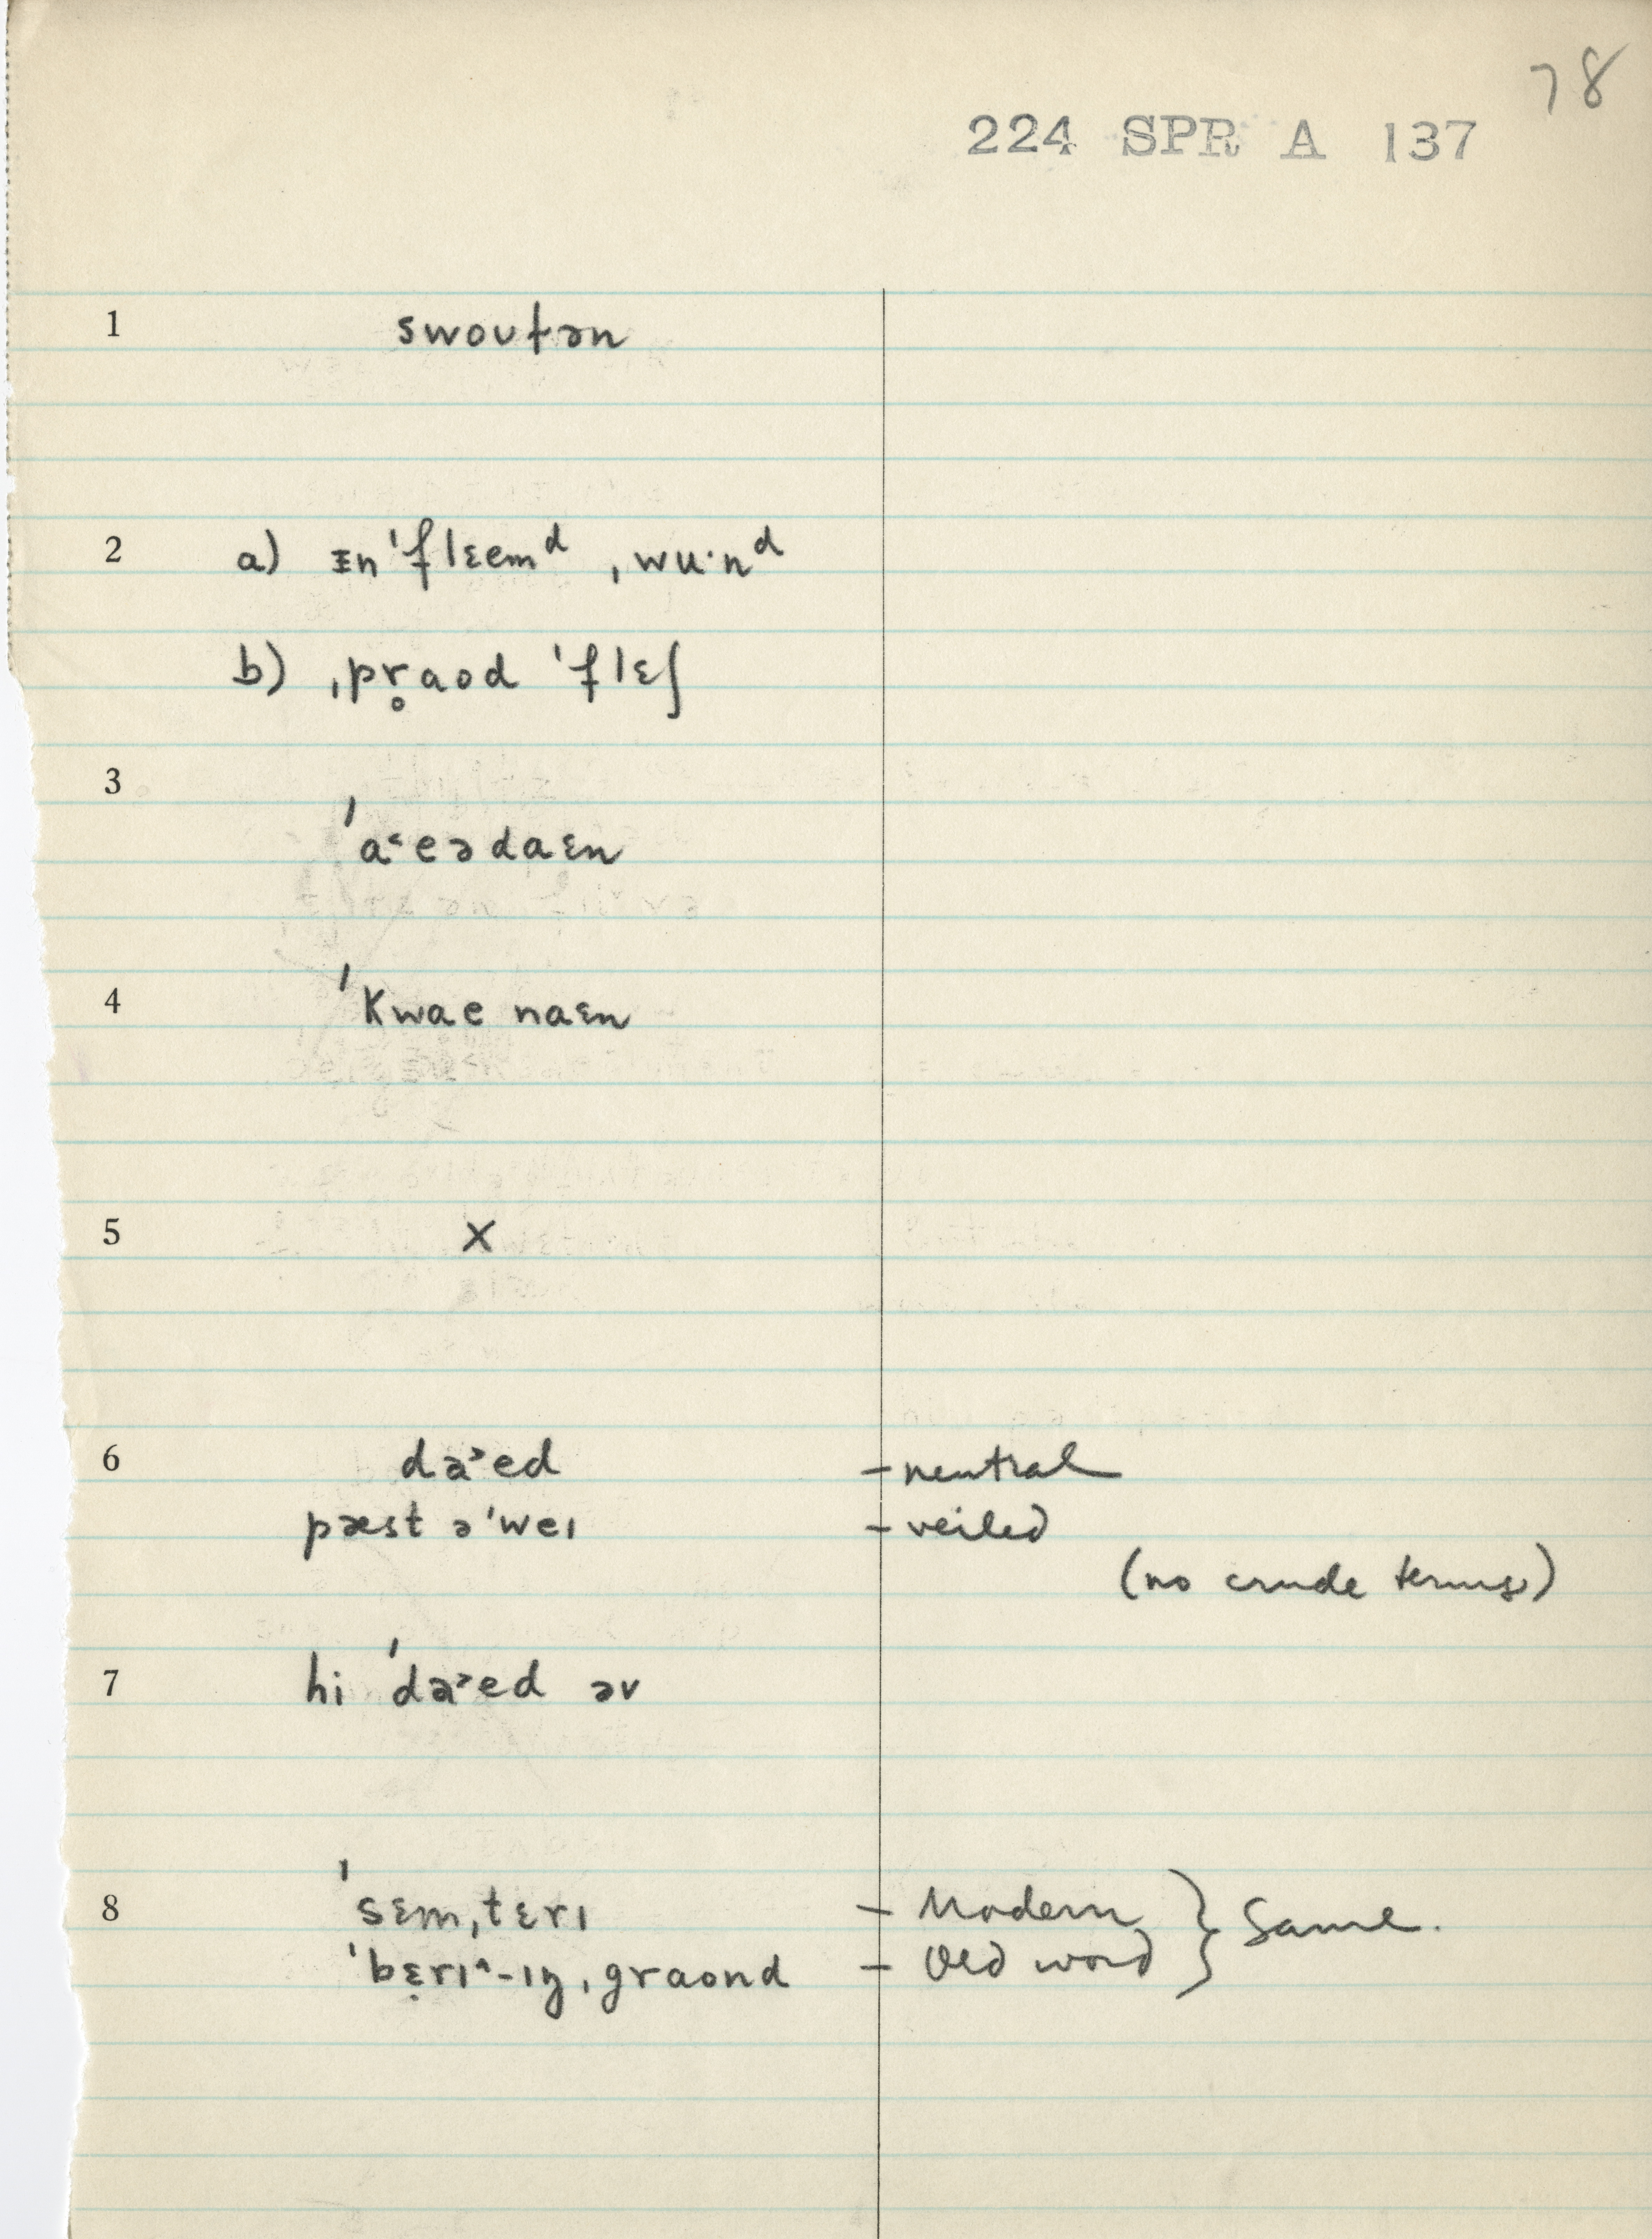 78
224 SPR A 137
1 swoutən
2 a) ɪn'fleemᵈ ˌwu·nᵈ
b) ˌpr̥aod 'flɛʃ
3
'a˂eədaɛn
4 'kwae naɛn
5 x
6 da˃ed - neutral
pæst ə'weɪ - veiled
(no crude terms)
7 hi 'da˃ed əv
8 'sɛmˌtɛrɪ - Modern } Same.
'bɛ̣rɪ^-ɪŋˌgraond - Old word